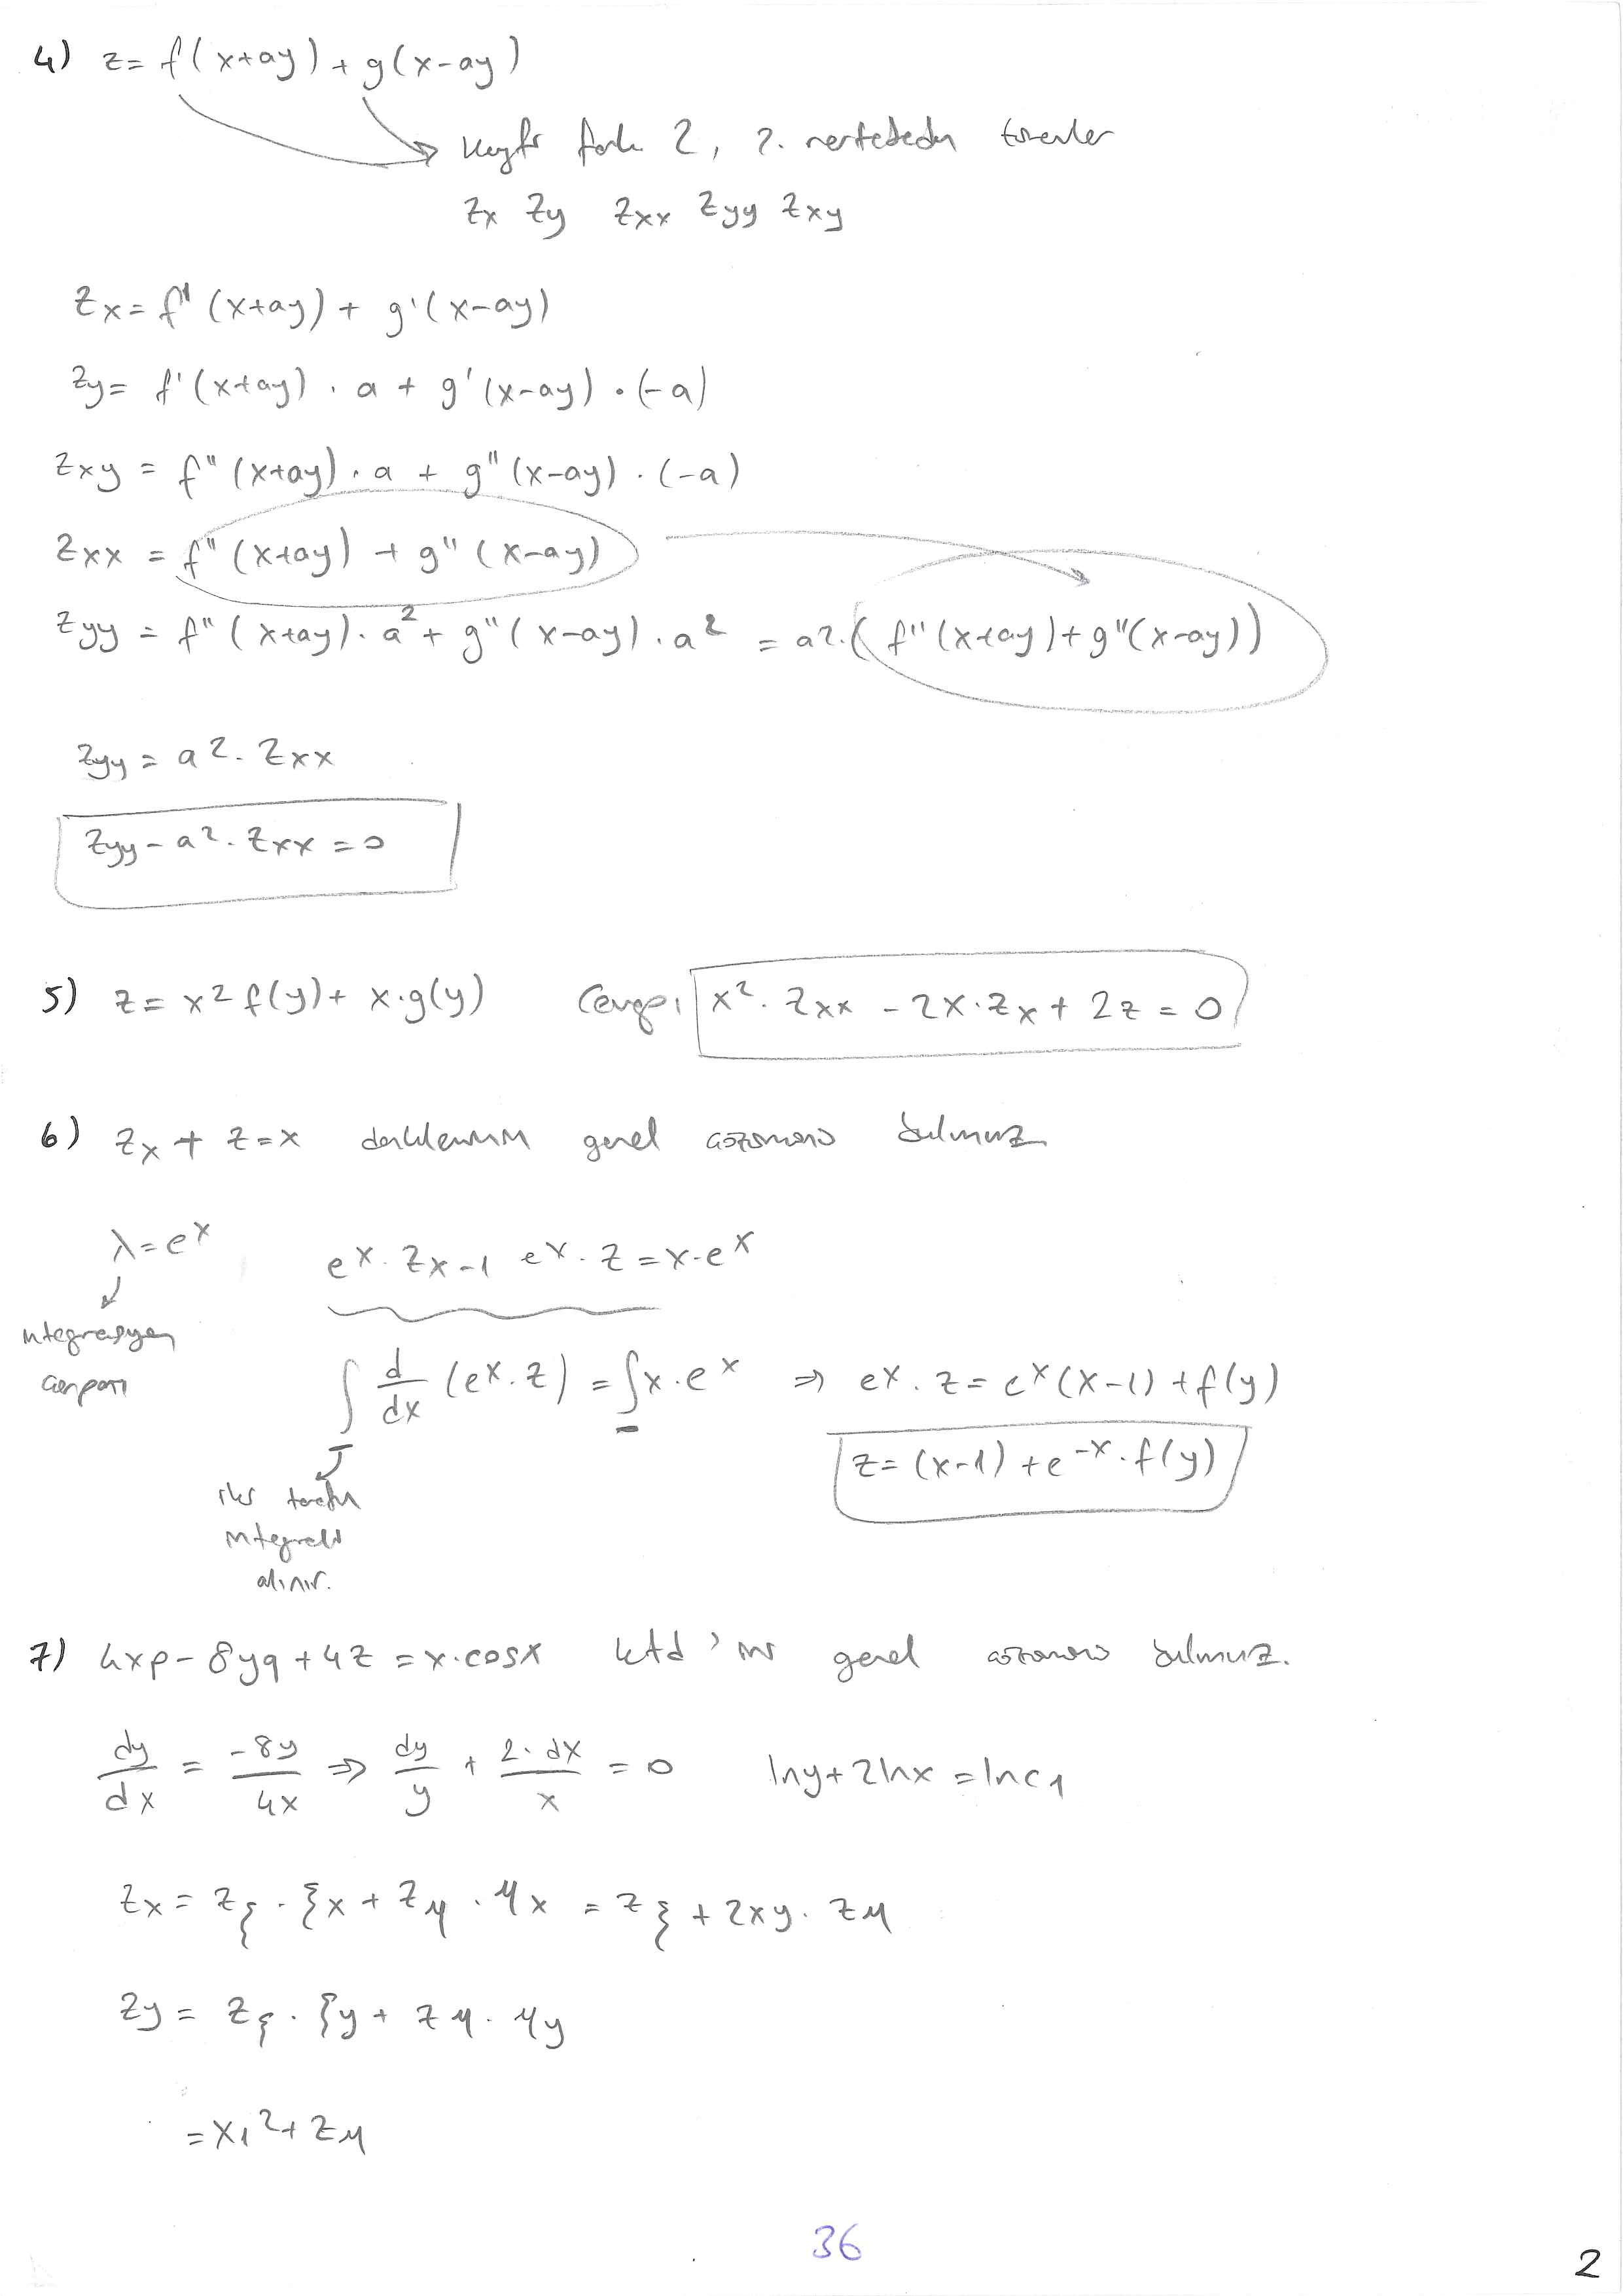 4) z= f(x+ay)+g(x-ay)
keyfi fonk. 2, 2. mertebeden türevler
zx zy zxx zyy zxy
zx= f'(x+ay) + g'(x-ay)
zy= f'(x+ay) . a + g'(x-ay) . (-a)
zxy = f"(x+ay) . a + g"(x-ay) . (-a)
zxx = f"(x+ay) + g"(x-ay)
zyy = f"(x+ay) . a² + g"(x-ay) . a² = a². (f"(x+ay)+g"(x-ay))
zyy = a². zxx
zyy - a². zxx = 0
5) z= x² f(y) + x.g(y) Cevap: x². zxx - 2x.zx + 2z = 0
6) zx + z=x denkleminin genel çözümünü bulunuz
λ=e^x
e^x. zx-1 e^x. z = x.e^x
integrasyon
çarpanı
∫ d/dx (e^x. z) = ∫x.e^x ⇒ e^x. z= e^x(x-1) + f(y)
z= (x-1) + e^-x. f(y)
iki tarafın
integrali
alınır.
7) 4xp - 8yq + 4z = x.cosx ktd'nin genel çözümünü bulunuz.
dy/dx = -8y/4x ⇒ dy/y + 2.dx/x = 0 lny+2lnx = lnc1
zx = zξ . ξx + zη . ηx = zξ + 2xy. zη
zy = zξ . ξy + zη . ηy
= x1² + zη
36
2